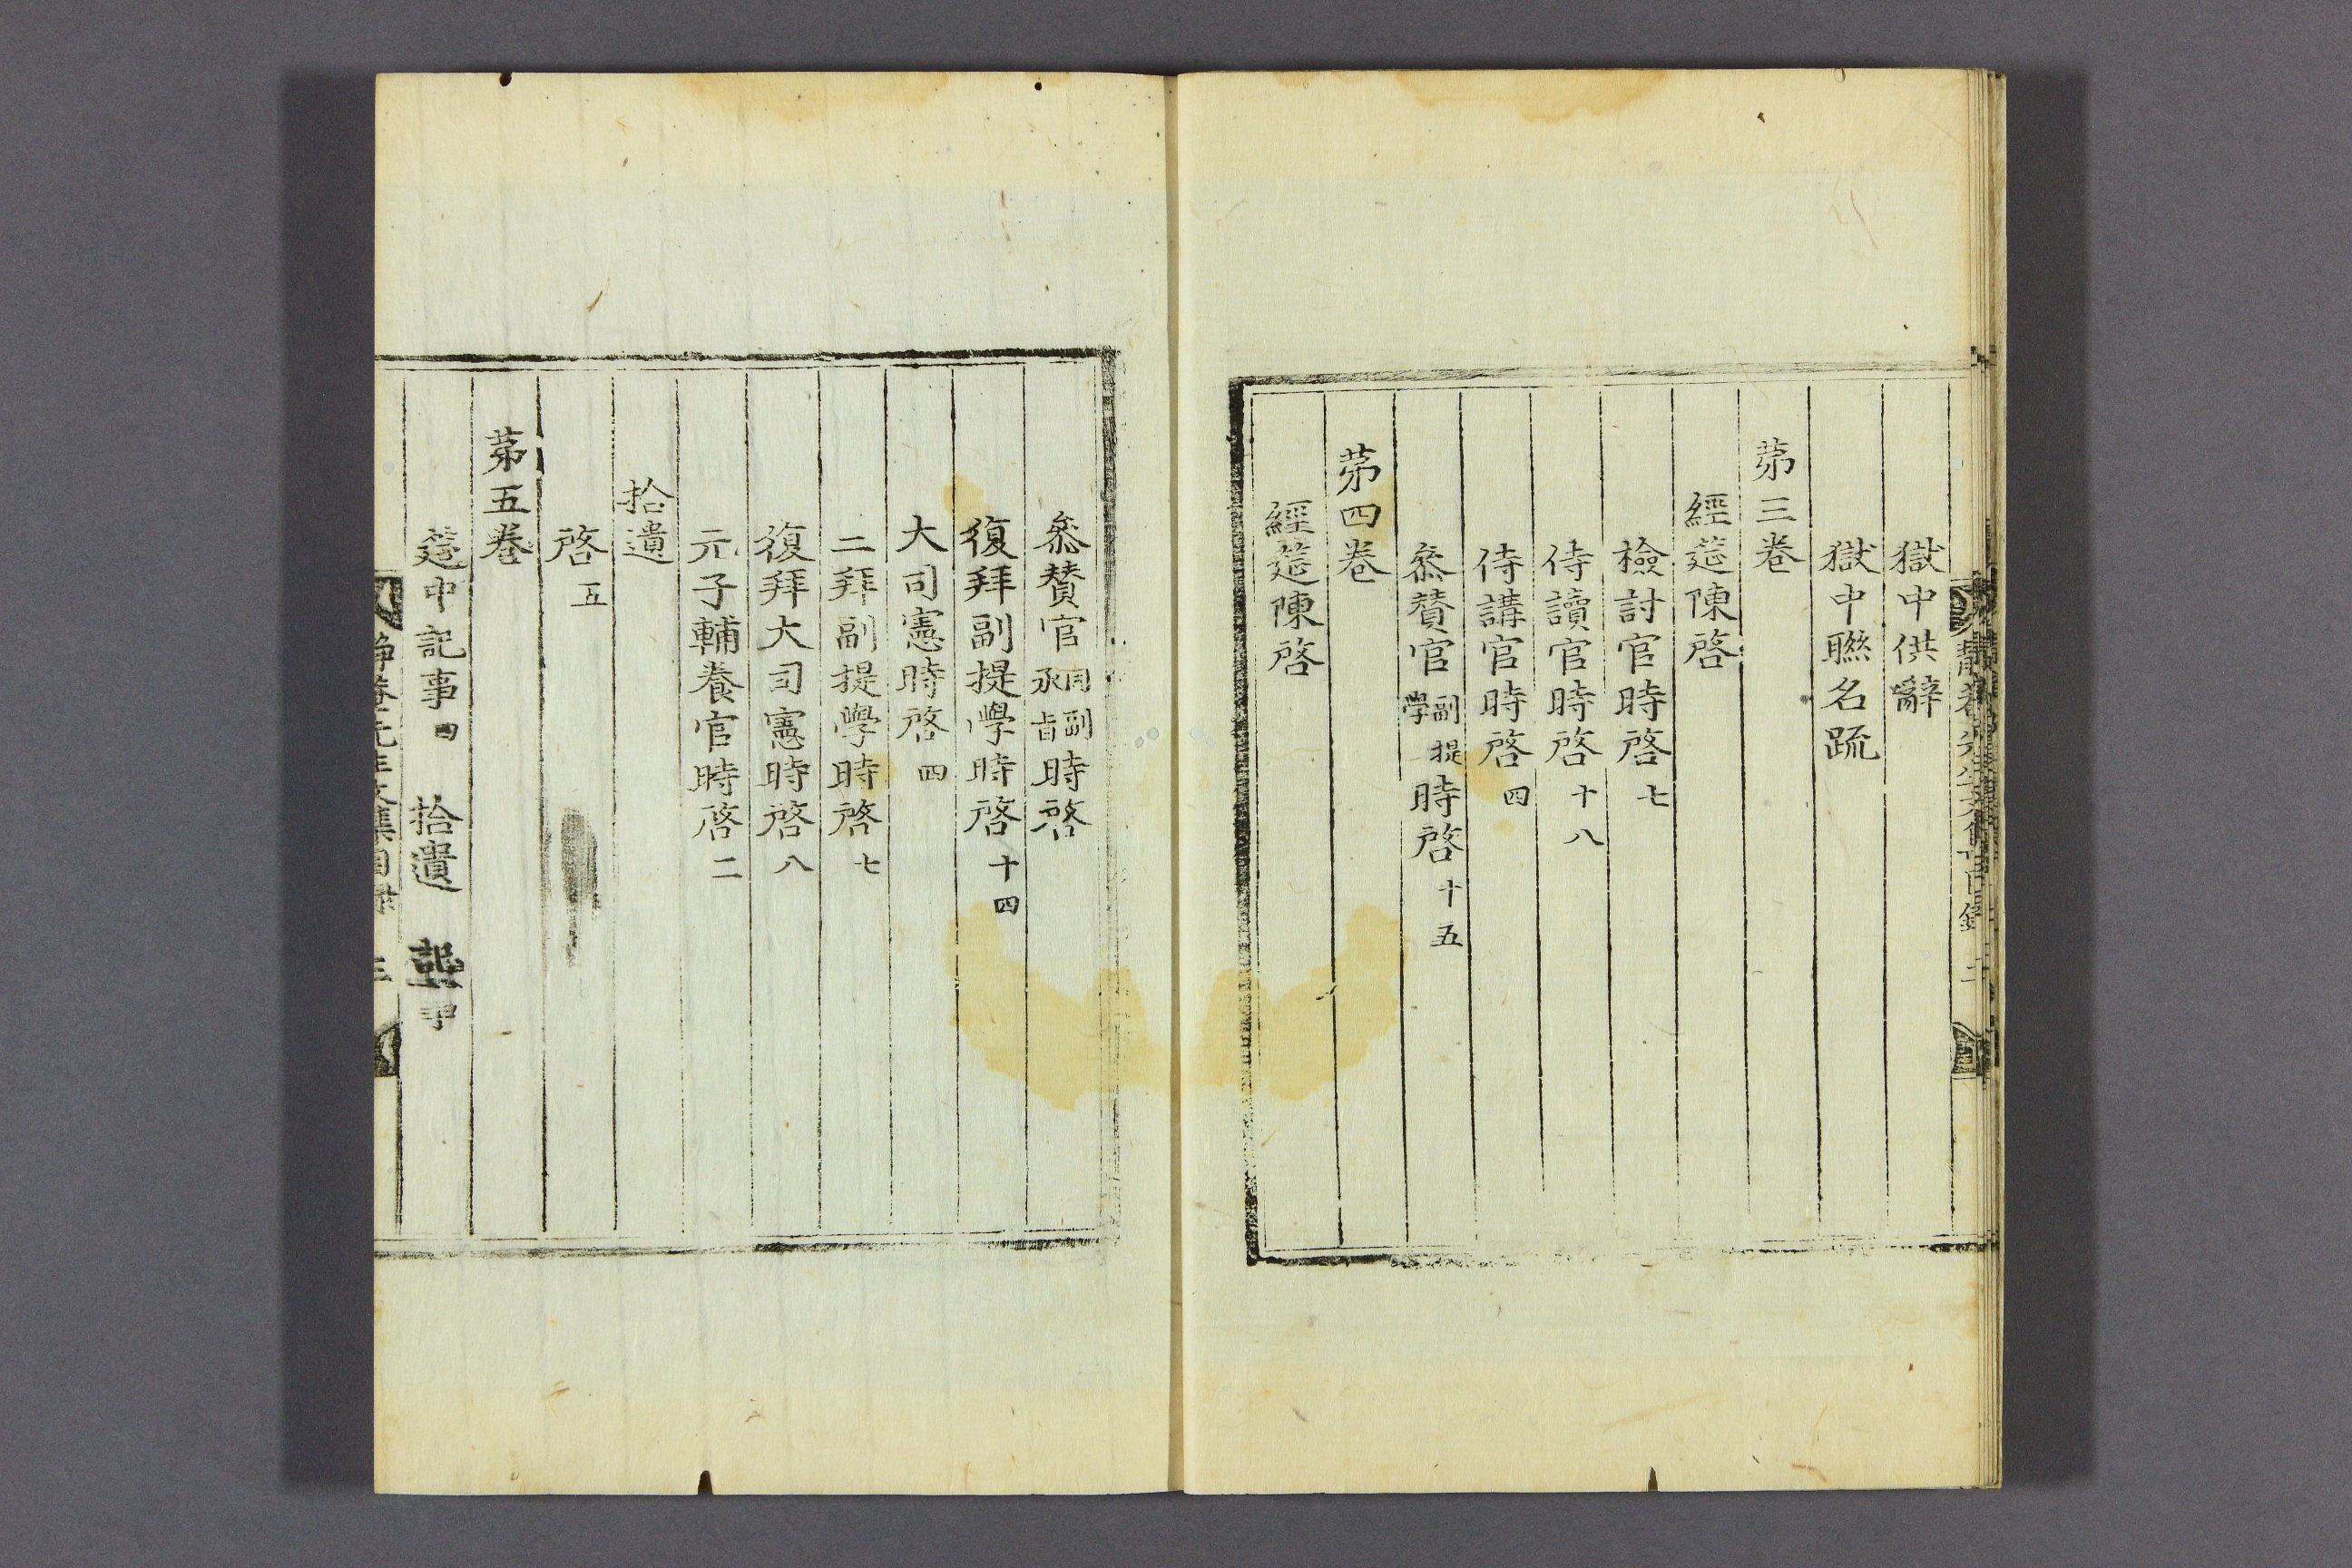 獄中供辭
獄中聯名疏
第三卷
經筵陳啓
檢討官時啓七
侍讀官時啓十八
侍講官時啓四
叅賛官副提學時啓十五
第四卷
經筵陳啓
叅賛官同副承旨時啓
復拜副提學時啓十四
大司憲時啓四
二拜副提學時啓七
復拜大司憲時啓八
元子輔養官時啓二
拾遺
啓五
第五卷
筵中記事四 拾遺
靜菴先生文集目錄 三